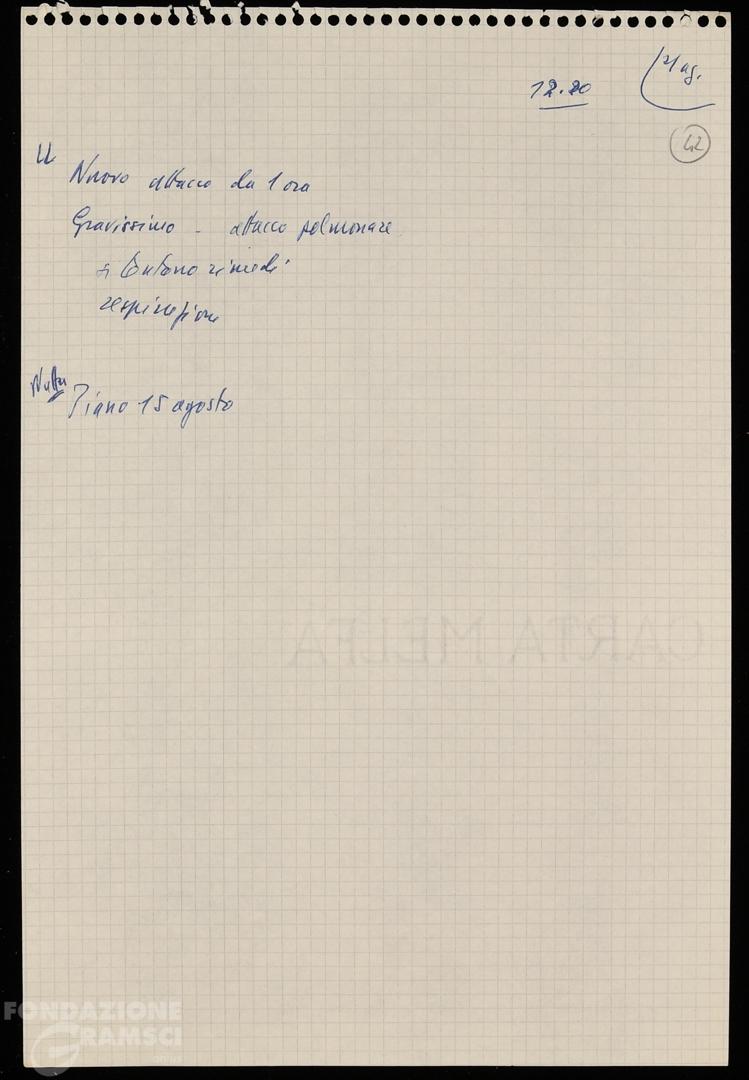 12.20
21 ag.
42
LL
Nuovo attacco da 1 ora
Gravissimo - attacco polmonare
si tentano rimedi
respirazione
Natta
Piano 15 agosto
CARTA MELFA
FONDAZIONE
GRAMSCI